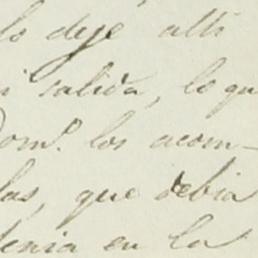 lo deje alli
i salida, lo qu
Dom.º los acom-
las, que debia
denia en la